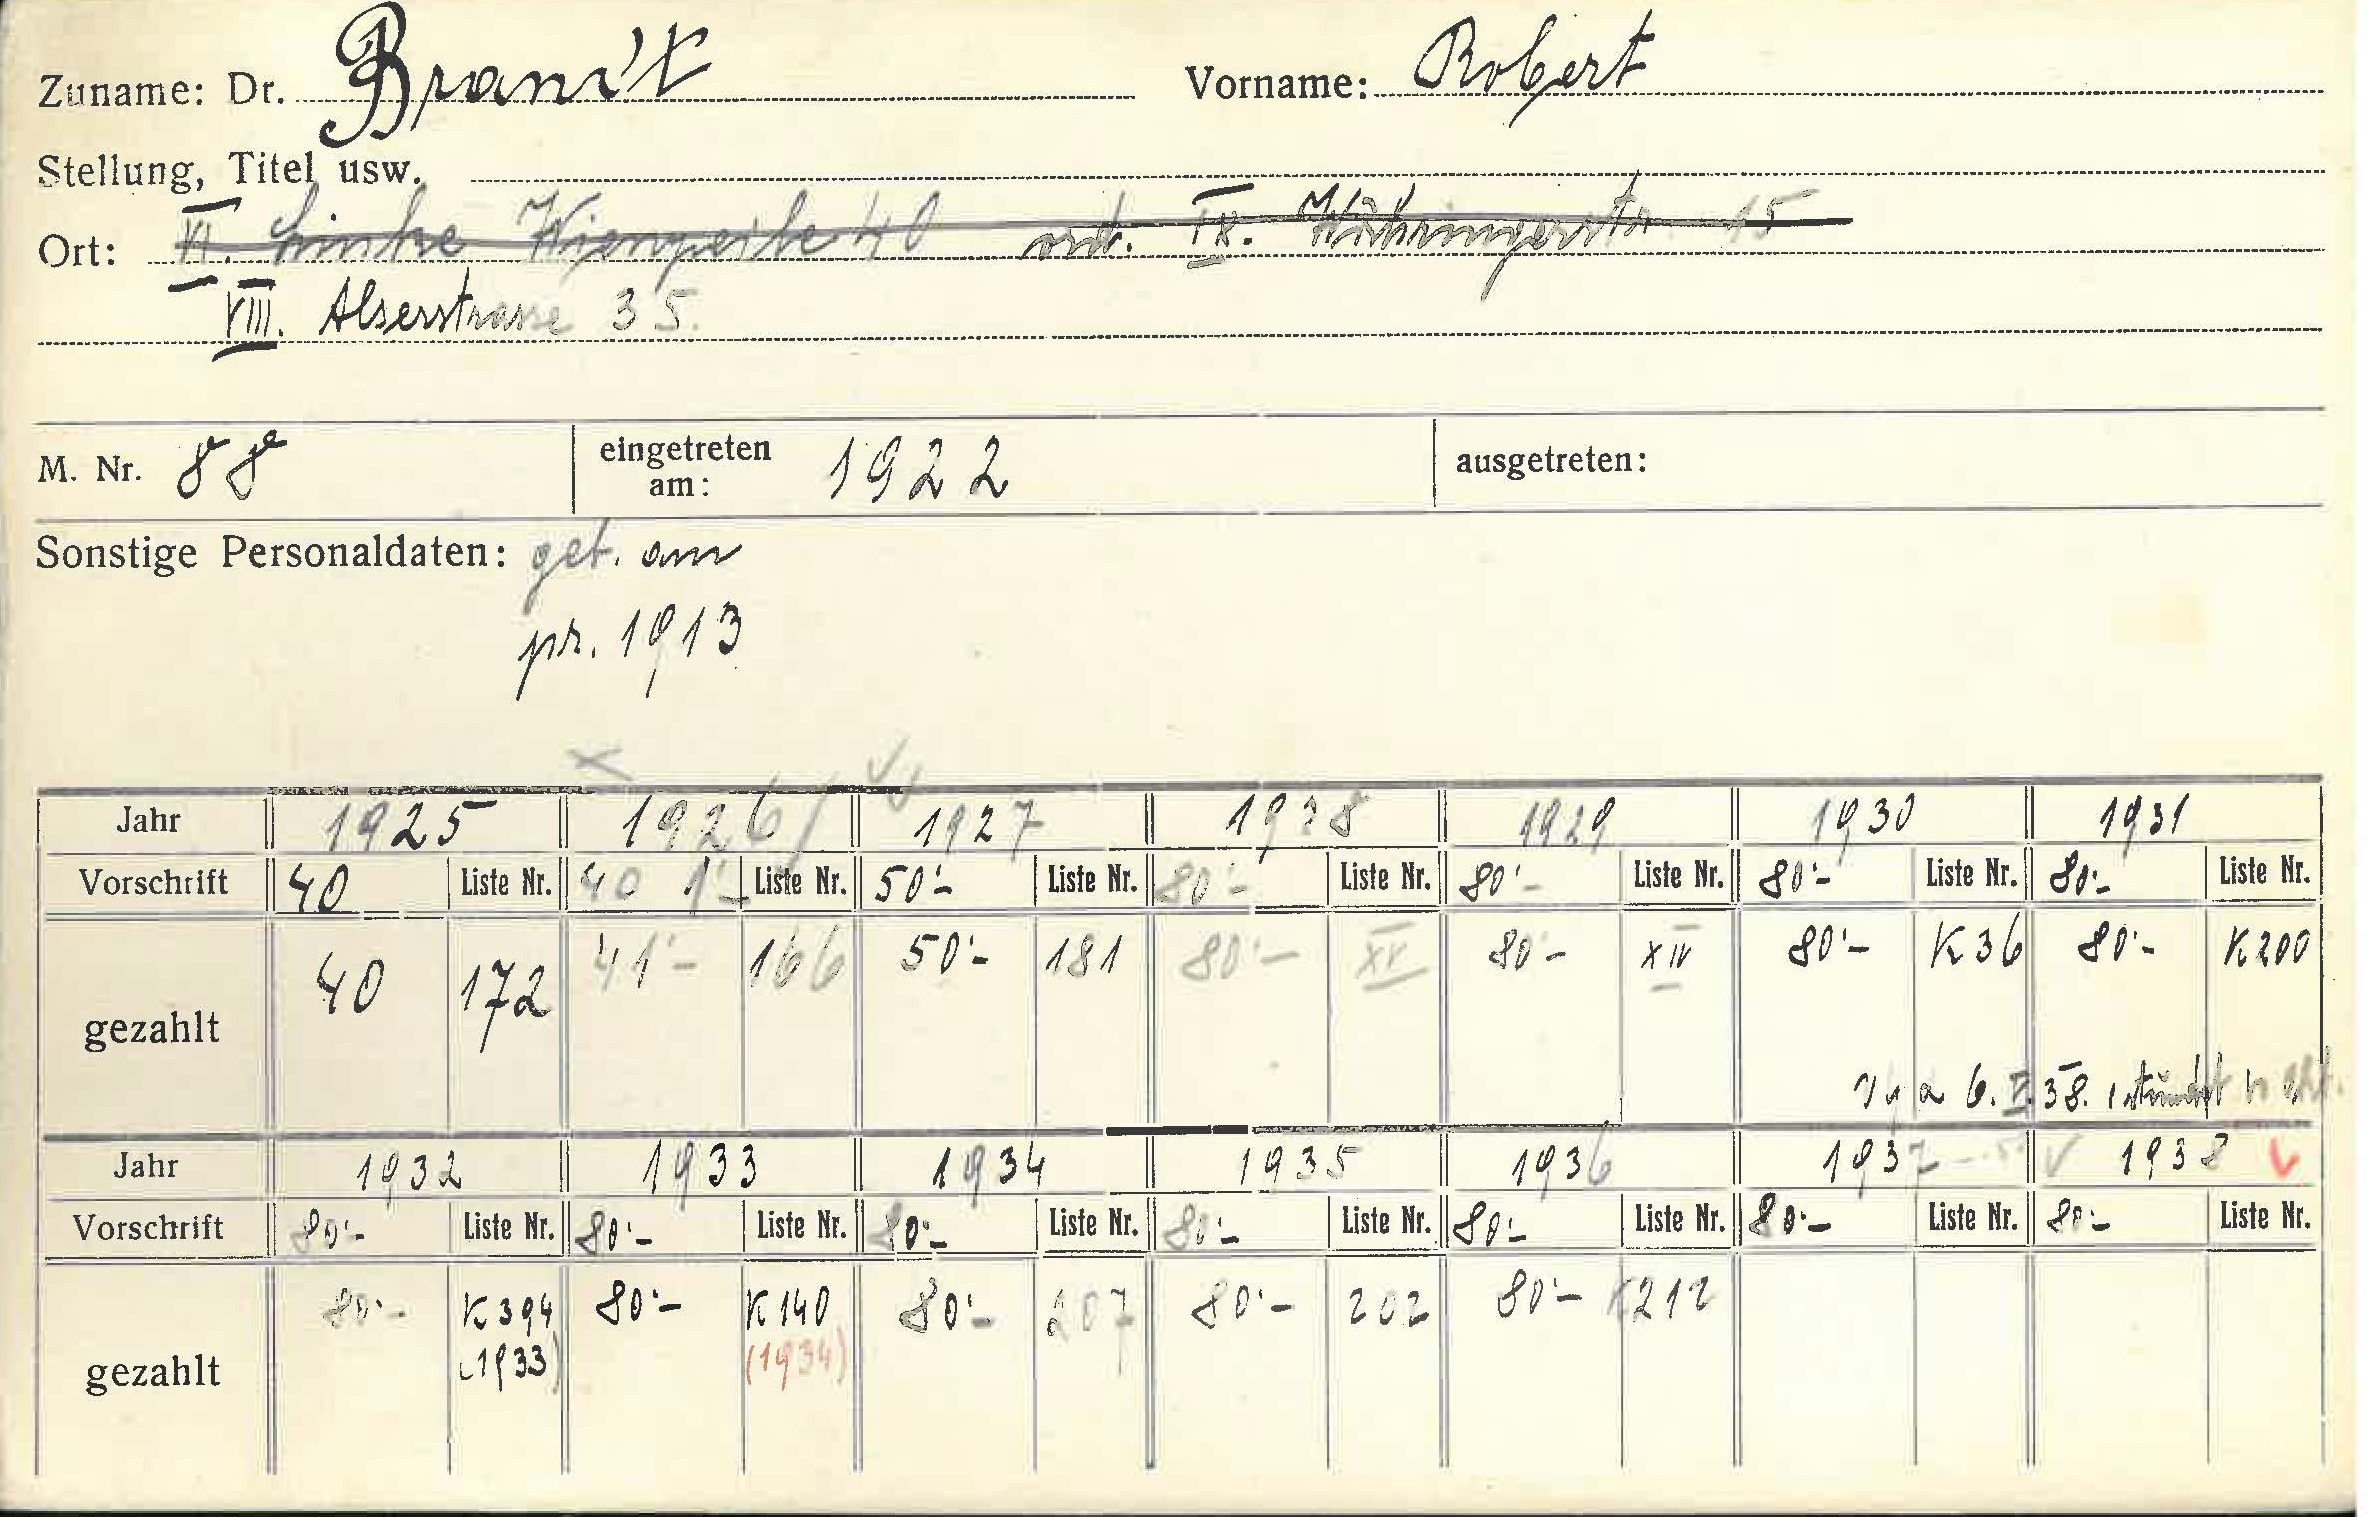 Zuname: Dr. Brandt Vorname: Robert
Stellung, Titel usw.
Ort: VI. Linke Wienzeile 40 ord. IX. Währingerstr. 15
VIII. Alserstrasse 35.
M. Nr. 88 eingetreten am: 1922 ausgetreten:
Sonstige Personaldaten: geb. am
pr. 1913
Jahr 1925 1926 1927 1928 1929 1930 1931
Vorschrift 40 Liste Nr. 40 1'- Liste Nr. 50'- Liste Nr. 80'- Liste Nr. 80'- Liste Nr. 80'- Liste Nr. 80'- Liste Nr.
gezahlt 40 172 41'- 166 50'- 181 80'- XV 80'- XIV 80'- K 36 80'- K 200
6. 38.
Jahr 1932 1933 1934 1935 1936 1937 1938
Vorschrift 80'- Liste Nr. 80'- Liste Nr. 80'- Liste Nr. 80'- Liste Nr. 80'- Liste Nr. 80'- Liste Nr. 80'- Liste Nr.
gezahlt 80'- K 394 80'- K 140 80'- 207 80'- 202 80'- K 212
(1933) (1934)